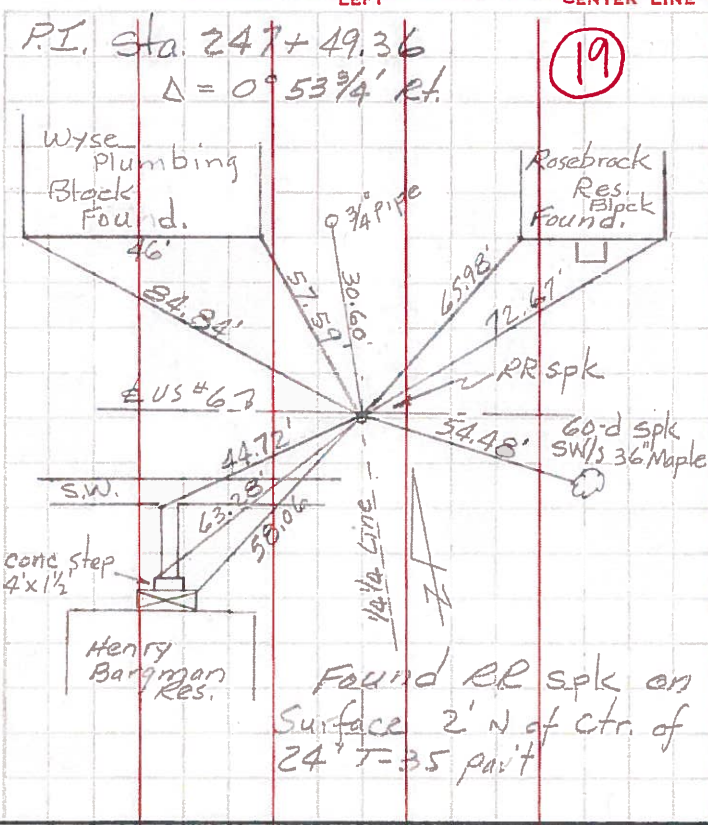 LEFT
CENTER LINE
P.I. Sta. 247+49.36
19
Δ = 0° 53 3/4' Rt.
Wyse
Plumbing
Block
Found.
46'
3/4" Pipe
Rosebrock
Res.
Block
Found.
84.84'
57.59'
30.60'
65.98'
72.67'
RR spk
℄ US #6
54.48'
60-d spk
SW/s 36" Maple
44.72'
S.W.
63.28'
58.06
1/4 1/4 Line
conc step
4'x1½'
Henry
Bargman
Res.
Found RR spk on
Surface 2' N of Ctr. of
24' T-35 pav't